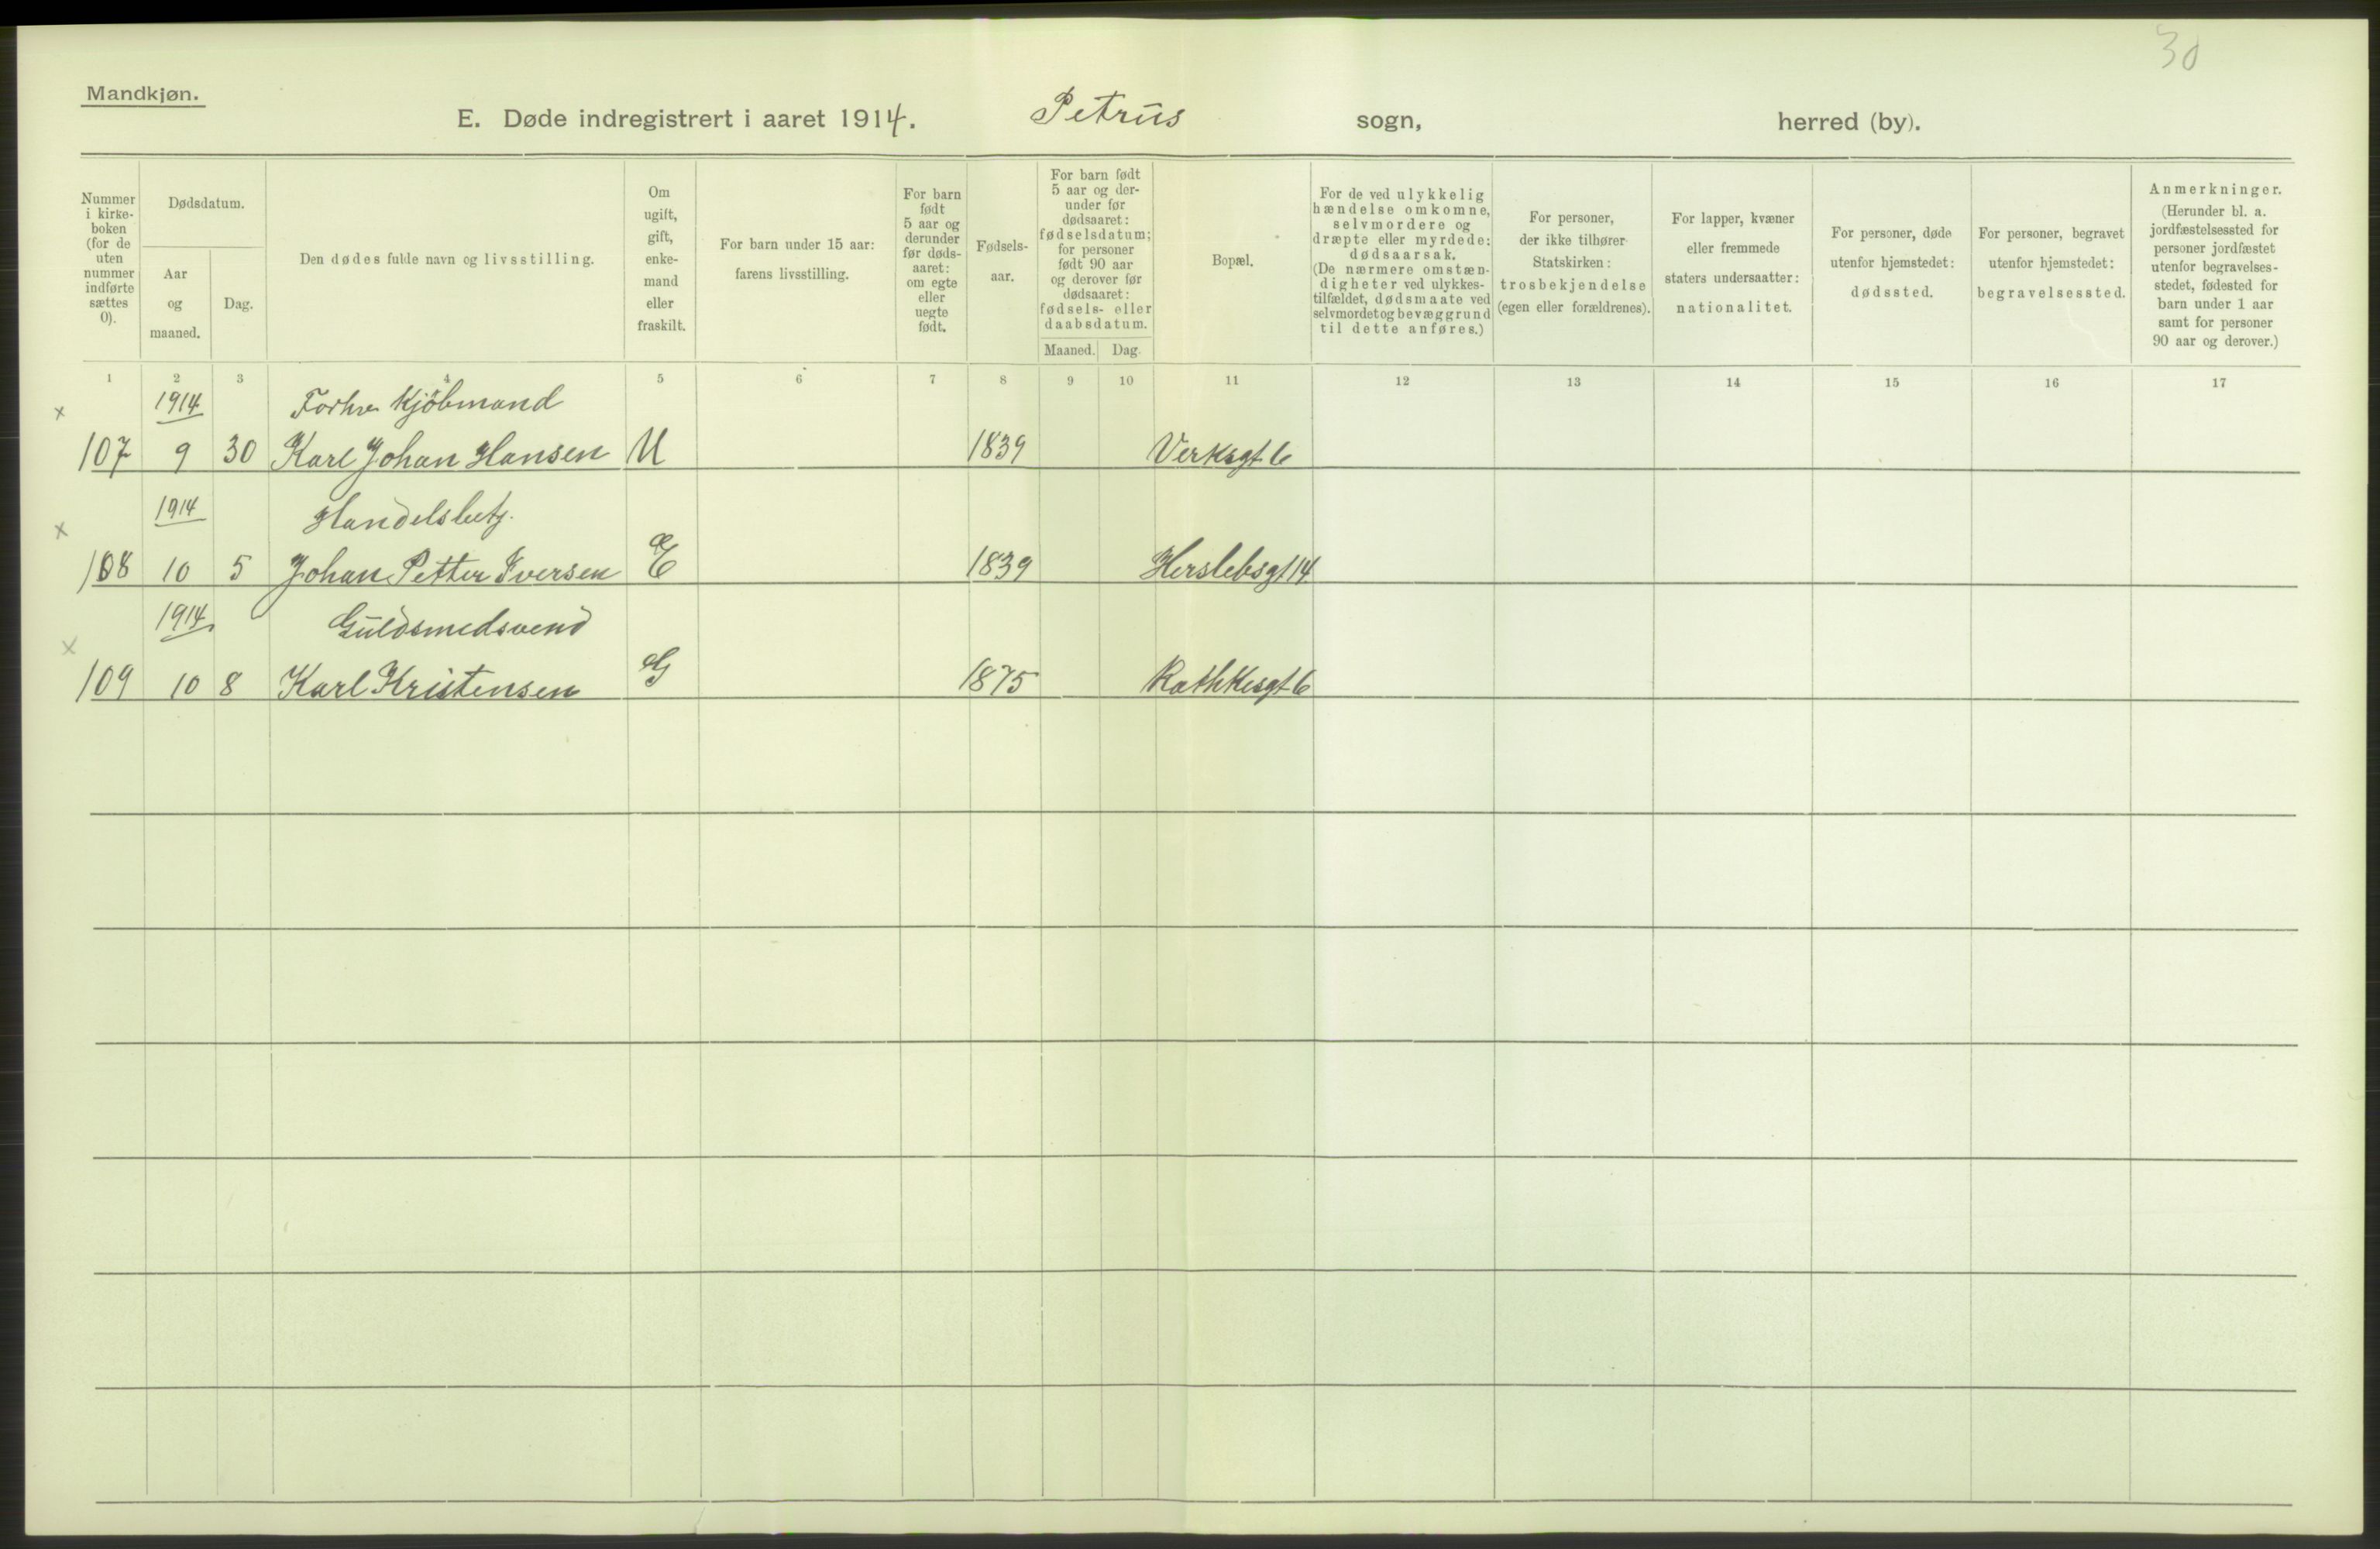 30
Mandkjøn.
E. Døde indregistrert i aaret 1914. Petrus sogn, herred (by).
Nummer i kirke-boken (for de uten nummer indførte sættes 0).
Dødsdatum.
Aar og maaned.
Dag.
Den dødes fulde navn og livsstilling.
Om ugift, gift, enke-mand eller fraskilt.
For barn under 15 aar: farens livsstilling.
For barn født 5 aar og derunder før døds-aaret: om egte eller uegte født.
Fødsels-aar.
For barn født 5 aar og der-under før dødsaaret: fødselsdatum; for personer født 90 aar og derover før dødsaaret: fødsels- eller daabsdatum.
Maaned. Dag.
Bopæl.
For de ved ulykkelig hændelse omkomne, selvmordere og dræpte eller myrdede: dødsaarsak. (De nærmere omstæn-digheter ved ulykkes-tilfældet, dødsmaate ved selvmordet og bevæggrund til dette anføres.)
For personer, der ikke tilhører Statskirken: trosbekjendelse (egen eller forældrenes).
For lapper, kvæner eller fremmede staters undersaatter: nationalitet.
For personer, døde utenfor hjemstedet: dødssted.
For personer, begravet utenfor hjemstedet: begravelsessted.
Anmerkninger. (Herunder bl. a. jordfæstelsessted for personer jordfæstet utenfor begravelses-stedet, fødested for barn under 1 aar samt for personer 90 aar og derover.)
1 2 3 4 5 6 7 8 9 10 11 12 13 14 15 16 17
x 1914 Forhv Kjøbmand
107 9 30 Karl Johan Hansen U 1839 Verksgt 6
x 1914 Handelsbetj.
108 10 5 Johan Petter Iversen E 1839 Herslebsgt 14
x 1914 Guldsmedsvend
109 10 8 Karl Kristensen G 1875 Rathkesgt 6